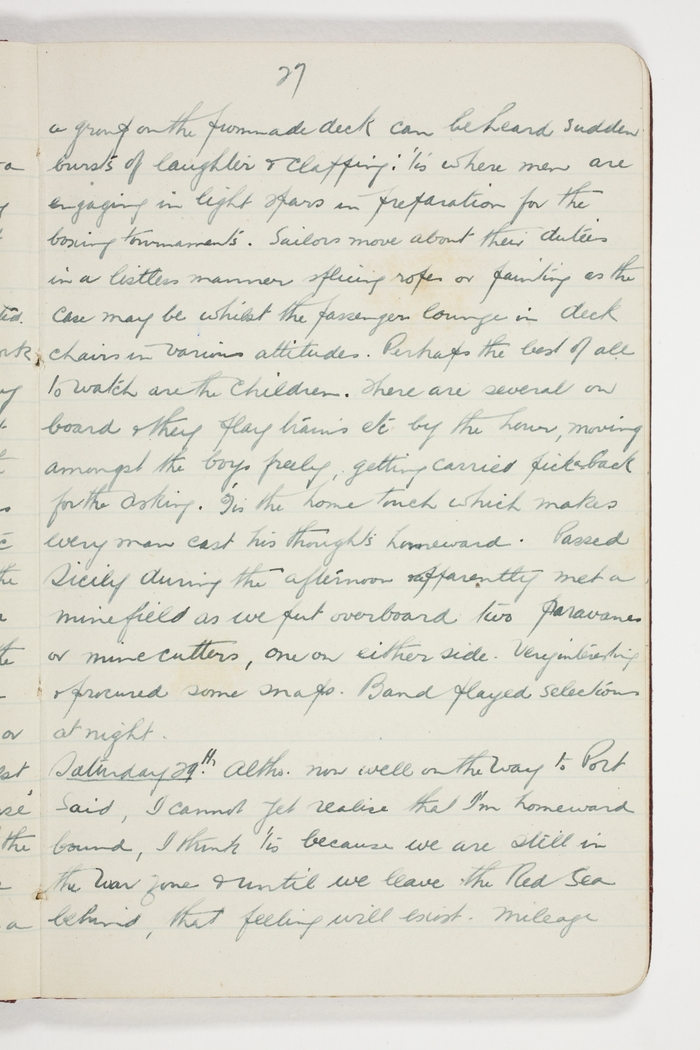 27
a group on the prommade deck can be heard sudden
bursts of laughter & clapping: 'tis where men are
engaging in light spars in preparation for the
boxing tournaments. Sailors move about their duties
in a listless manner splicing ropes or painting as the
case may be whilst the passengers lounge in deck
chairs in various attitudes. Perhaps the best of all
to watch are the children. There are several on
board & they play trains etc by the hour, moving
amongst the boys freely, getting carried pickerback
for the asking. 'Tis the home touch which makes
every man cast his thoughts homeward. Passed
Sicily during the afternoon & apparently met a
minefield as we put overboard two paravanes
or mine cutters, one on either side. Very interesting
& procured some snaps. Band played selections
at night.
Saturday 29th. Altho. now well on the way to Port
Said, I cannot yet realise that I'm homeward
bound, I think 'tis because we are still in
the War zone & until we leave the Red Sea
behind, that feeling will exist. Mileage